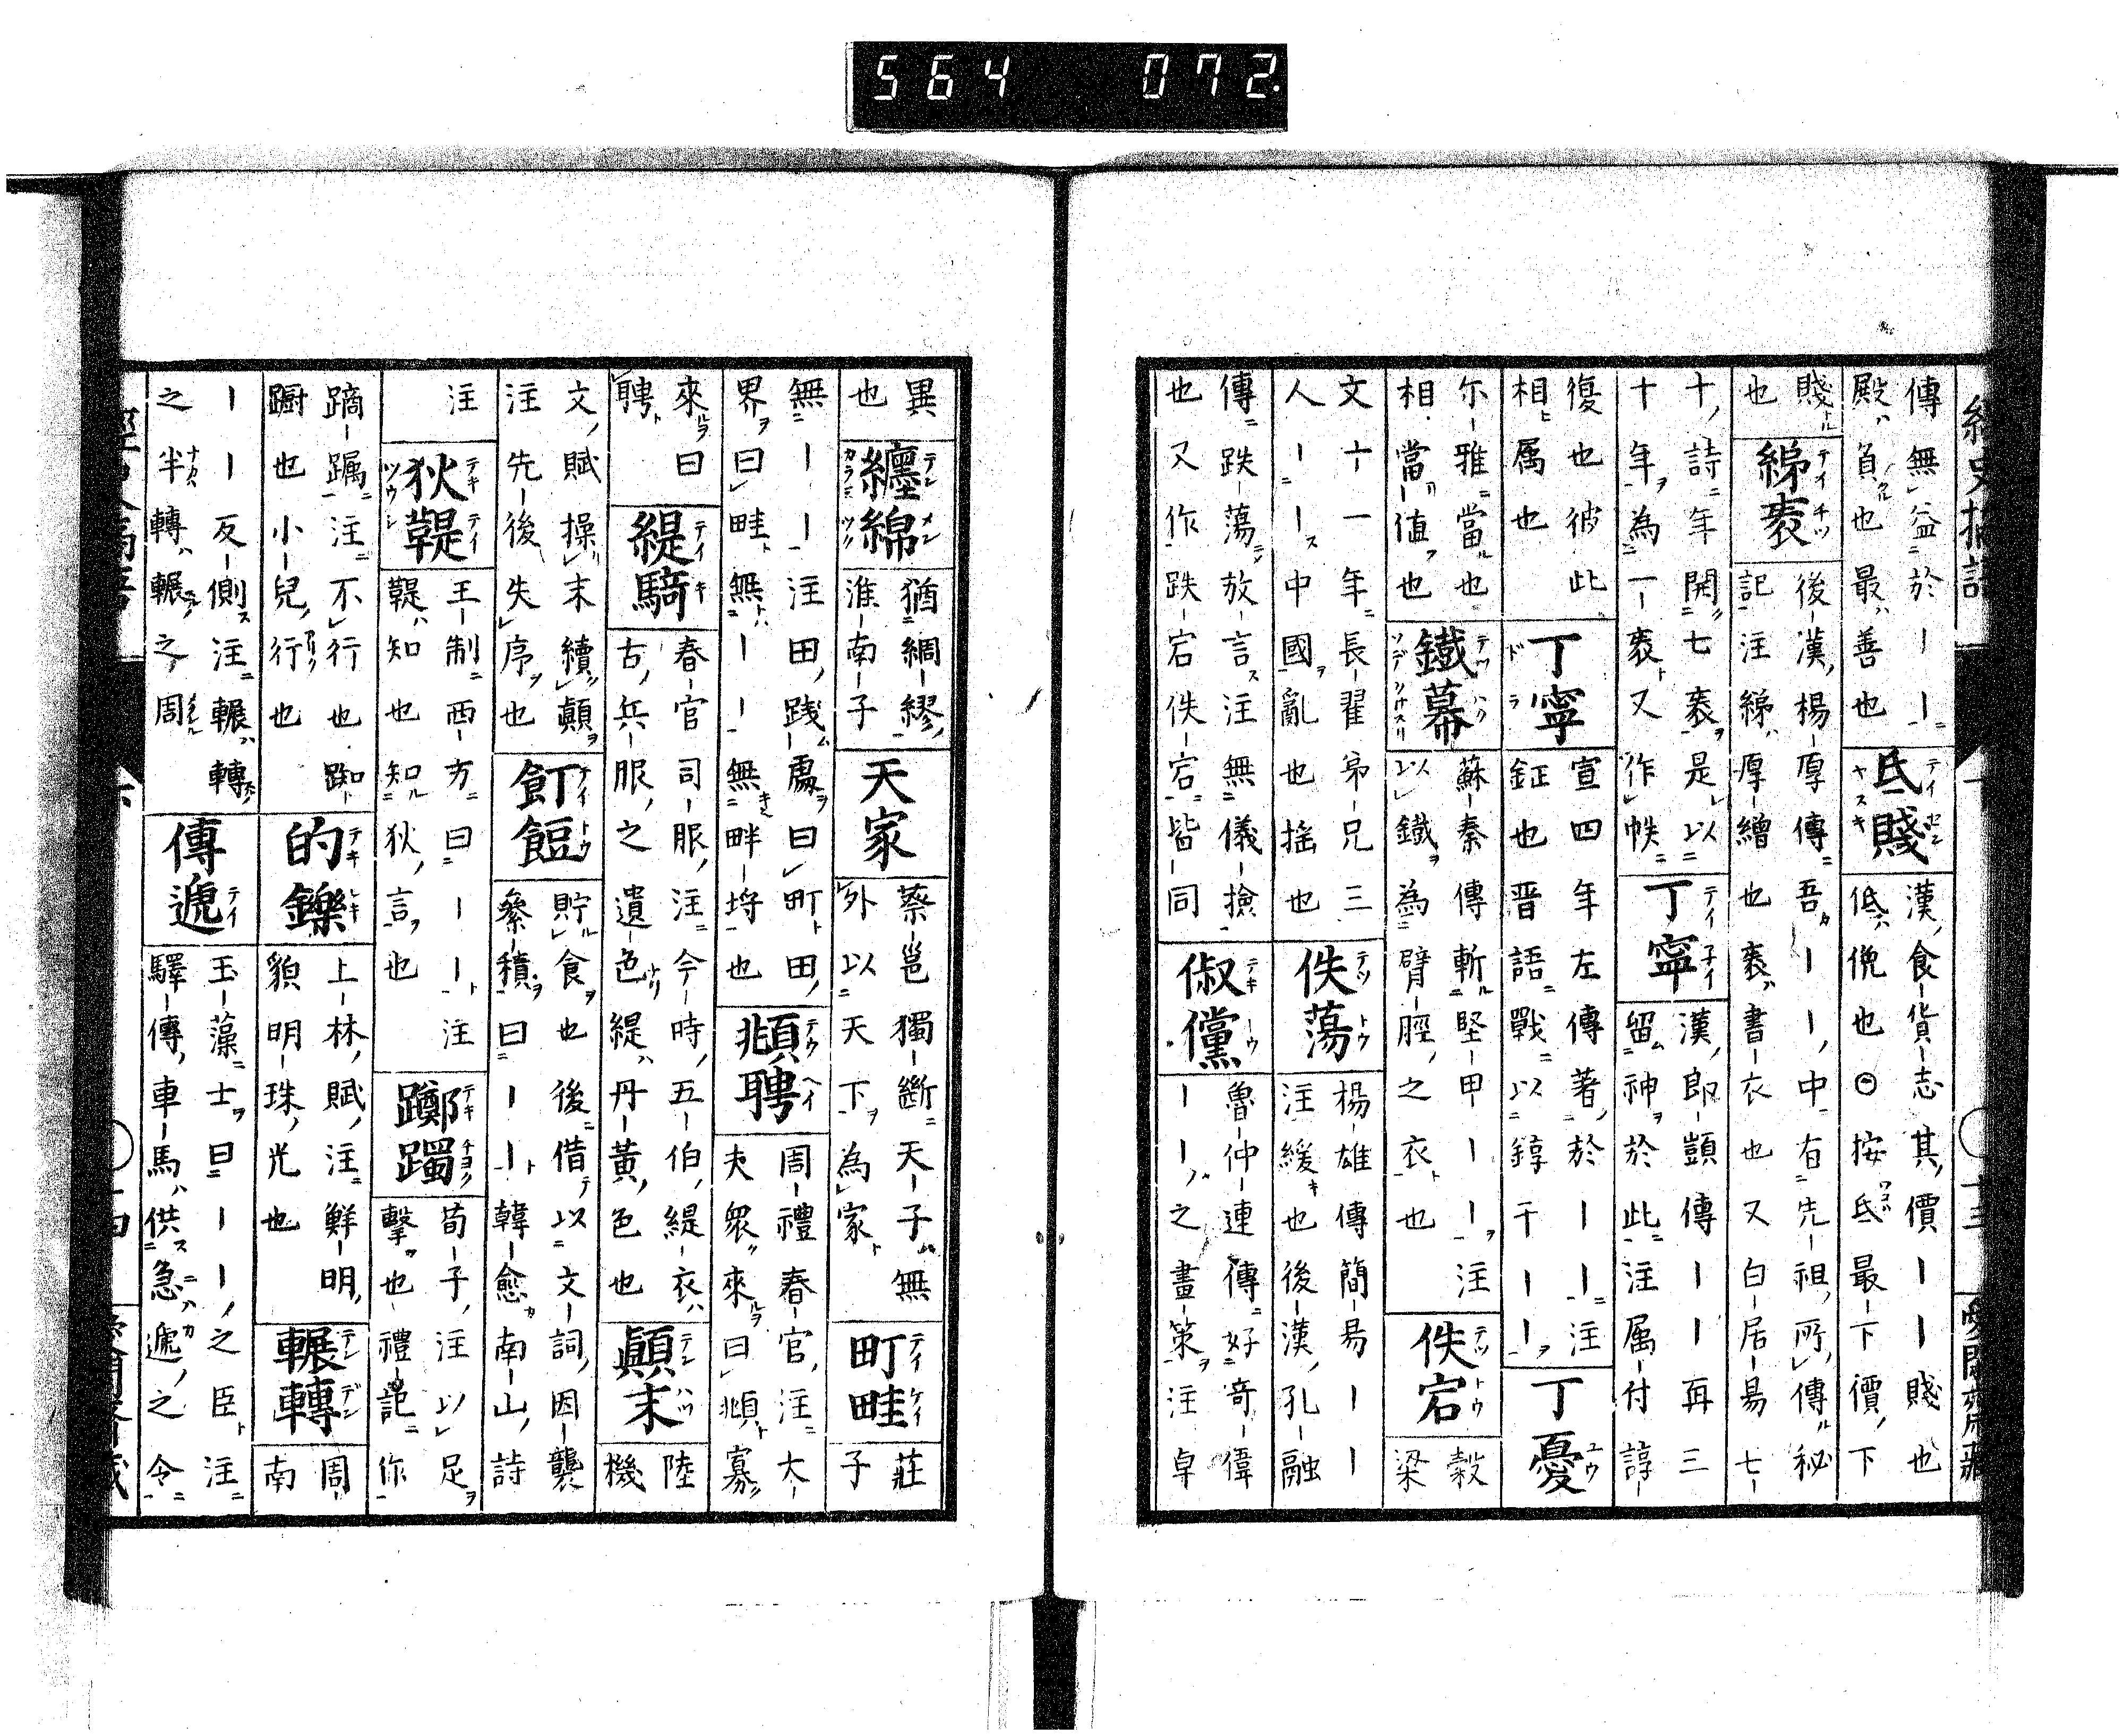 564 072.
傳無益於｜｜｜
殿負也最善也
氐賤 テイセン ヤスキ
漢食貨志其價｜｜賤也
低俛也⊙按氐最下價下
賤
也
綈袠 テイチツ
後漢楊厚傳吾｜｜中有先祖所傳秘
記注綈厚繒也袠書衣也又白居易七
十詩年開七袠是以
十年為一袠又作帙
丁寧 テイ子イ
漢郎顗傳｜｜再三
留神於此注属付諄
復也彼此
相属也
丁寧 ドラ
宣四年左傳著於｜｜注
鉦也晋語戰以錞于｜｜
丁憂 ユウ
尓雅當也
相當值也
鐵幕
蘇秦傳斬堅甲｜｜注
以鐵為臂脛之衣也
佚宕 テツトウ
穀
梁
文十一年長翟弟兄三
人｜｜中國亂也搖也
佚蕩 テツトウ
楊雄傳簡易｜｜
注緩也後漢孔融
傳跌蕩放言注無儀撿
也又作跌宕佚宕皆同
俶儻
魯仲連傳好奇偉
｜｜之畫策注卓
異
也
纏綿 テンメン
猶綢繆
淮南子
天家
蔡邕獨斷天子無
外以天下為家
町畦 テイケイ
莊
子
無｜｜注田践處曰町田
界曰畦無｜｜無畔埒也
頫聘
周禮春官注大
夫眾來曰頫寡
來曰
聘
緹騎 テイキ
春官司服注今時五伯緹衣
古兵服之遺色緹丹黃色也
顛末 テンハツ
陸
機
文賦操末續顛
注先後失序也
飣餖 テイトウ
貯食也後借以文詞因襲
絫積曰｜｜韓愈南山詩
注
狄鞮 テキテイ ツウジ
王制西方曰｜｜注
鞮知也知狄言也
躑躅 テキチヨク
荀子注以足
擊也禮記作
蹢躅注不行也踟
蹰也小兒行也
的鑠
上林賦注鮮明
貌明珠光也
輾轉 テンデン
周
南
｜｜反側注輾轉
之半轉輾之周
傳遞 テイ
玉藻士曰｜｜之臣注
驛傳車馬供急遞之令